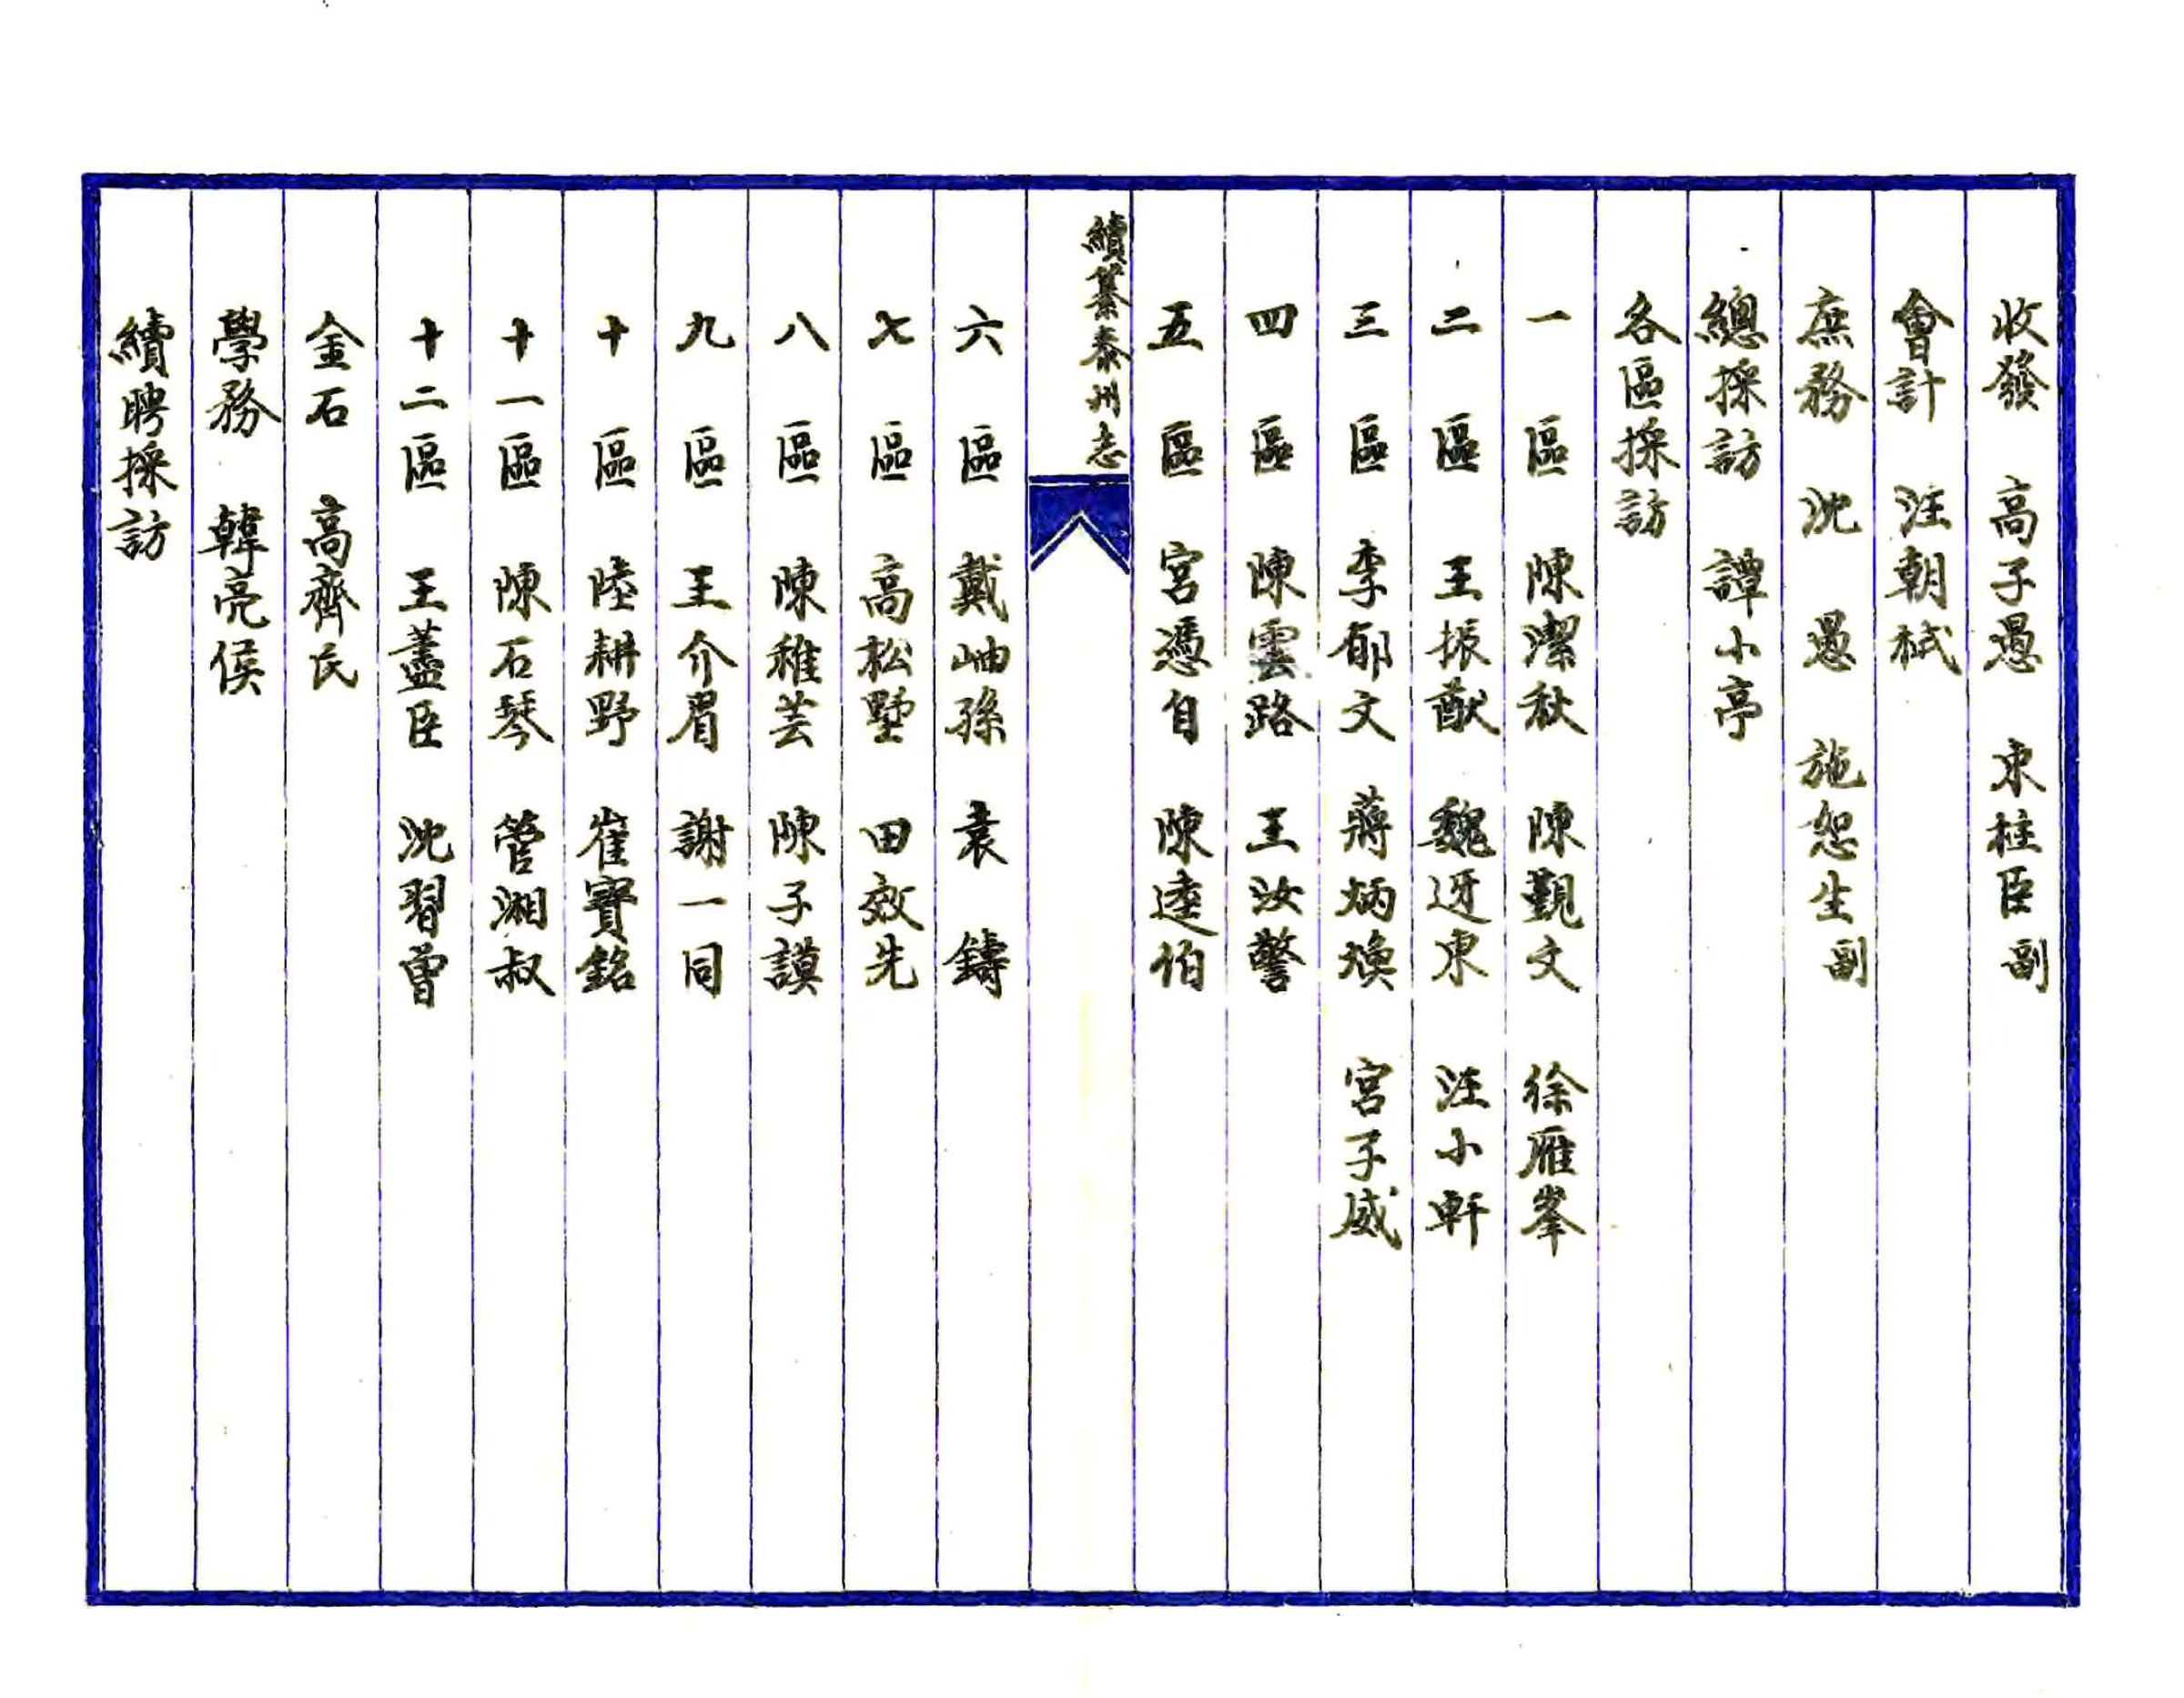 收發　高子愚　東柱臣副
會計　汪朝栻
庶務　沈　愚　施恕生副
總採訪　譚小亭
各區採訪
一區　陳潔秋　陳覲文　徐雁峯
二區　王振猷　魏迓東　汪小軒
三區　李郁文　蔣炳煥　宮子威
四區　陳雲路　王汝警
五區　宮憑自　陳逵伯
續纂泰州志
六區　戴岫孫　袁　鑄
七區　高松墅　田效先
八區　陳稚芸　陳子謨
九區　王介眉　謝一同
十區　陸耕野　崔寶銘
十一區　陳石琴　管湘叔
十二區　王藎臣　沈習曾
金石　高齊民
學務　韓亮侯
續聘採訪